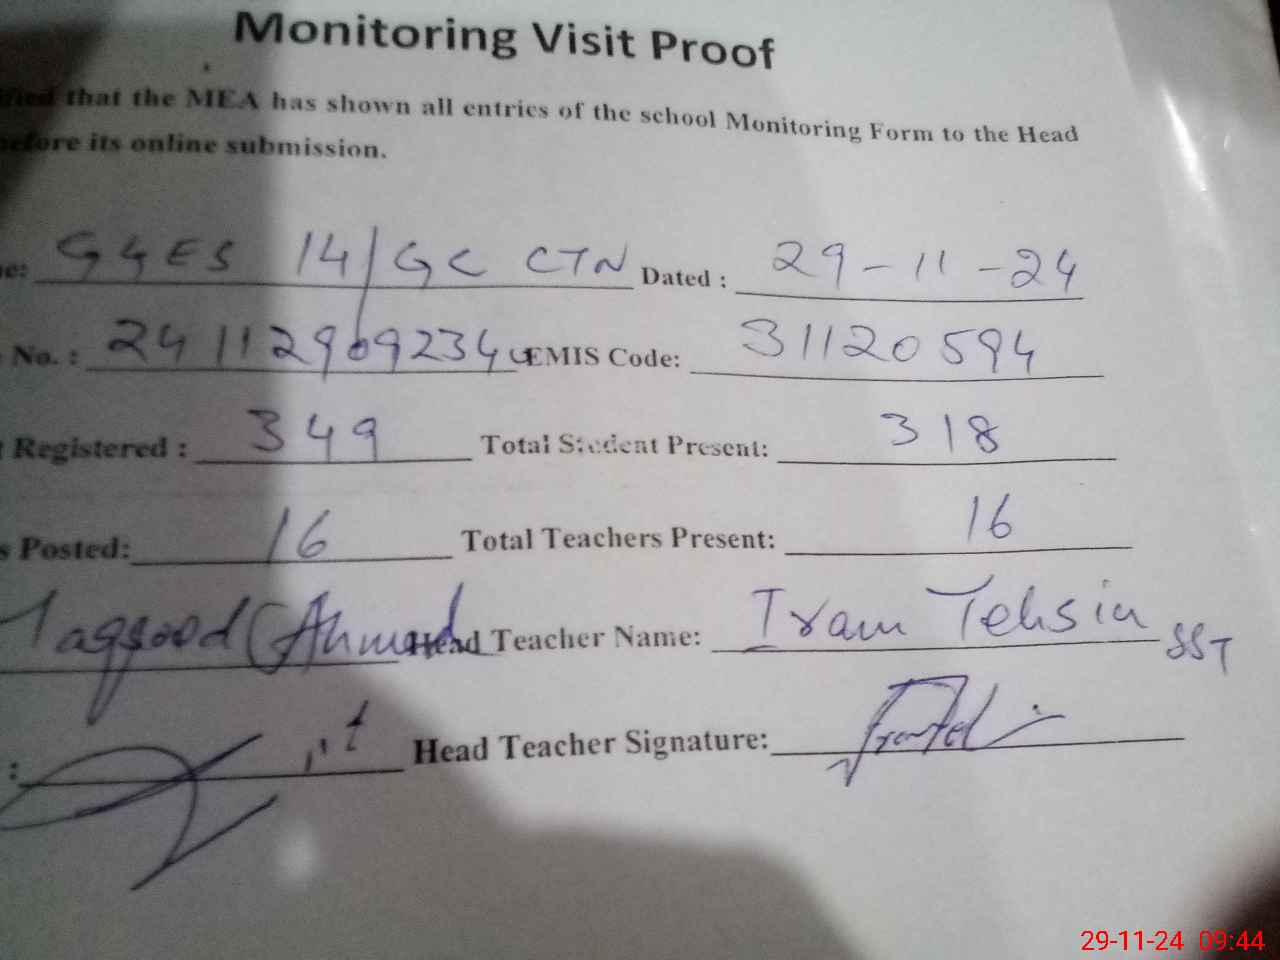 Monitoring Visit Proof
that the MEA has shown all entries of the school Monitoring Form to the Head
before its online submission.
GGES 14/GC CTN Dated : 29-11-24
No. : EMIS Code: 31120594
Registered : 349 Total Student Present: 318
Posted: 16 Total Teachers Present: 16
Maqsood Ahmad Head Teacher Name: Iram Tehsin SST
: Head Teacher Signature:
29-11-24 09:44